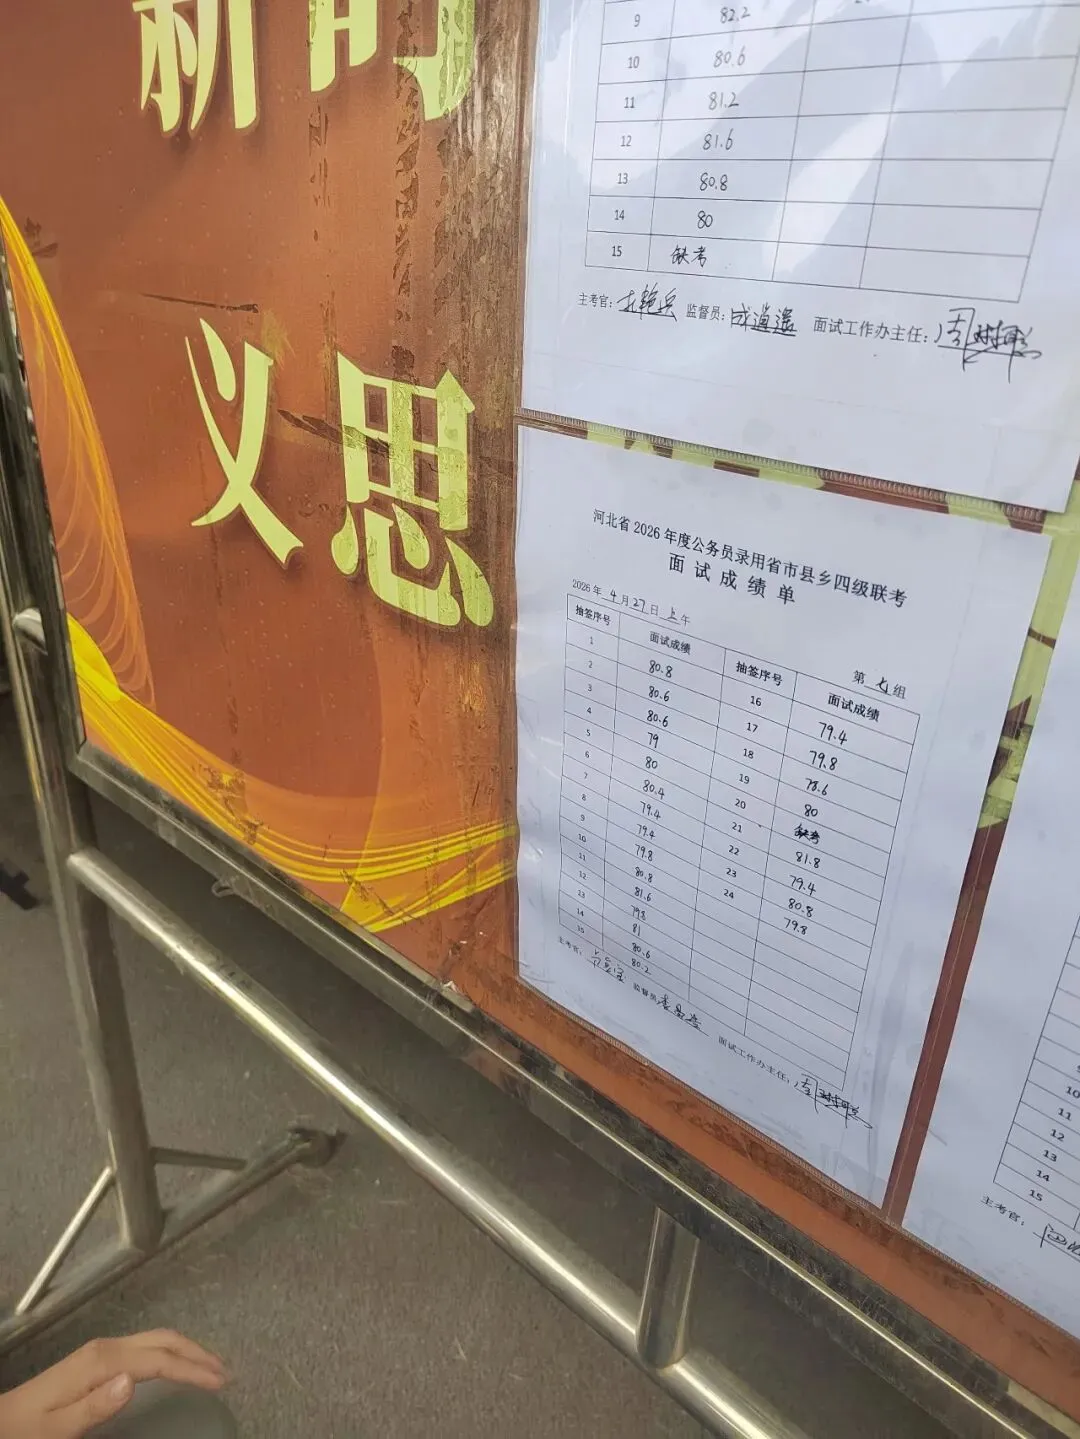 新时
义思
9 82.2
10 80.6
11 81.2
12 81.6
13 80.8
14 80
15 缺考
主考官： 监督员：成逍遥 面试工作办主任：周
河北省2026年度公务员录用省市县乡四级联考
面试成绩单
2026年4月27日上午
第七组
抽签序号 面试成绩 抽签序号 面试成绩
1 80.8 16 79.4
2 80.6 17 79.8
3 80.6 18 78.6
4 79 19 80
5 80 20 缺考
6 80.4 21 81.8
7 79.4 22 79.4
8 79.4 23 80.8
9 79.8 24 79.8
10 80.8
11 81.6
12 79.8
13 81
14 80.6
15 80.2
主考官： 监督员： 面试工作办主任：周
10
11
12
13
14
15
主考官：